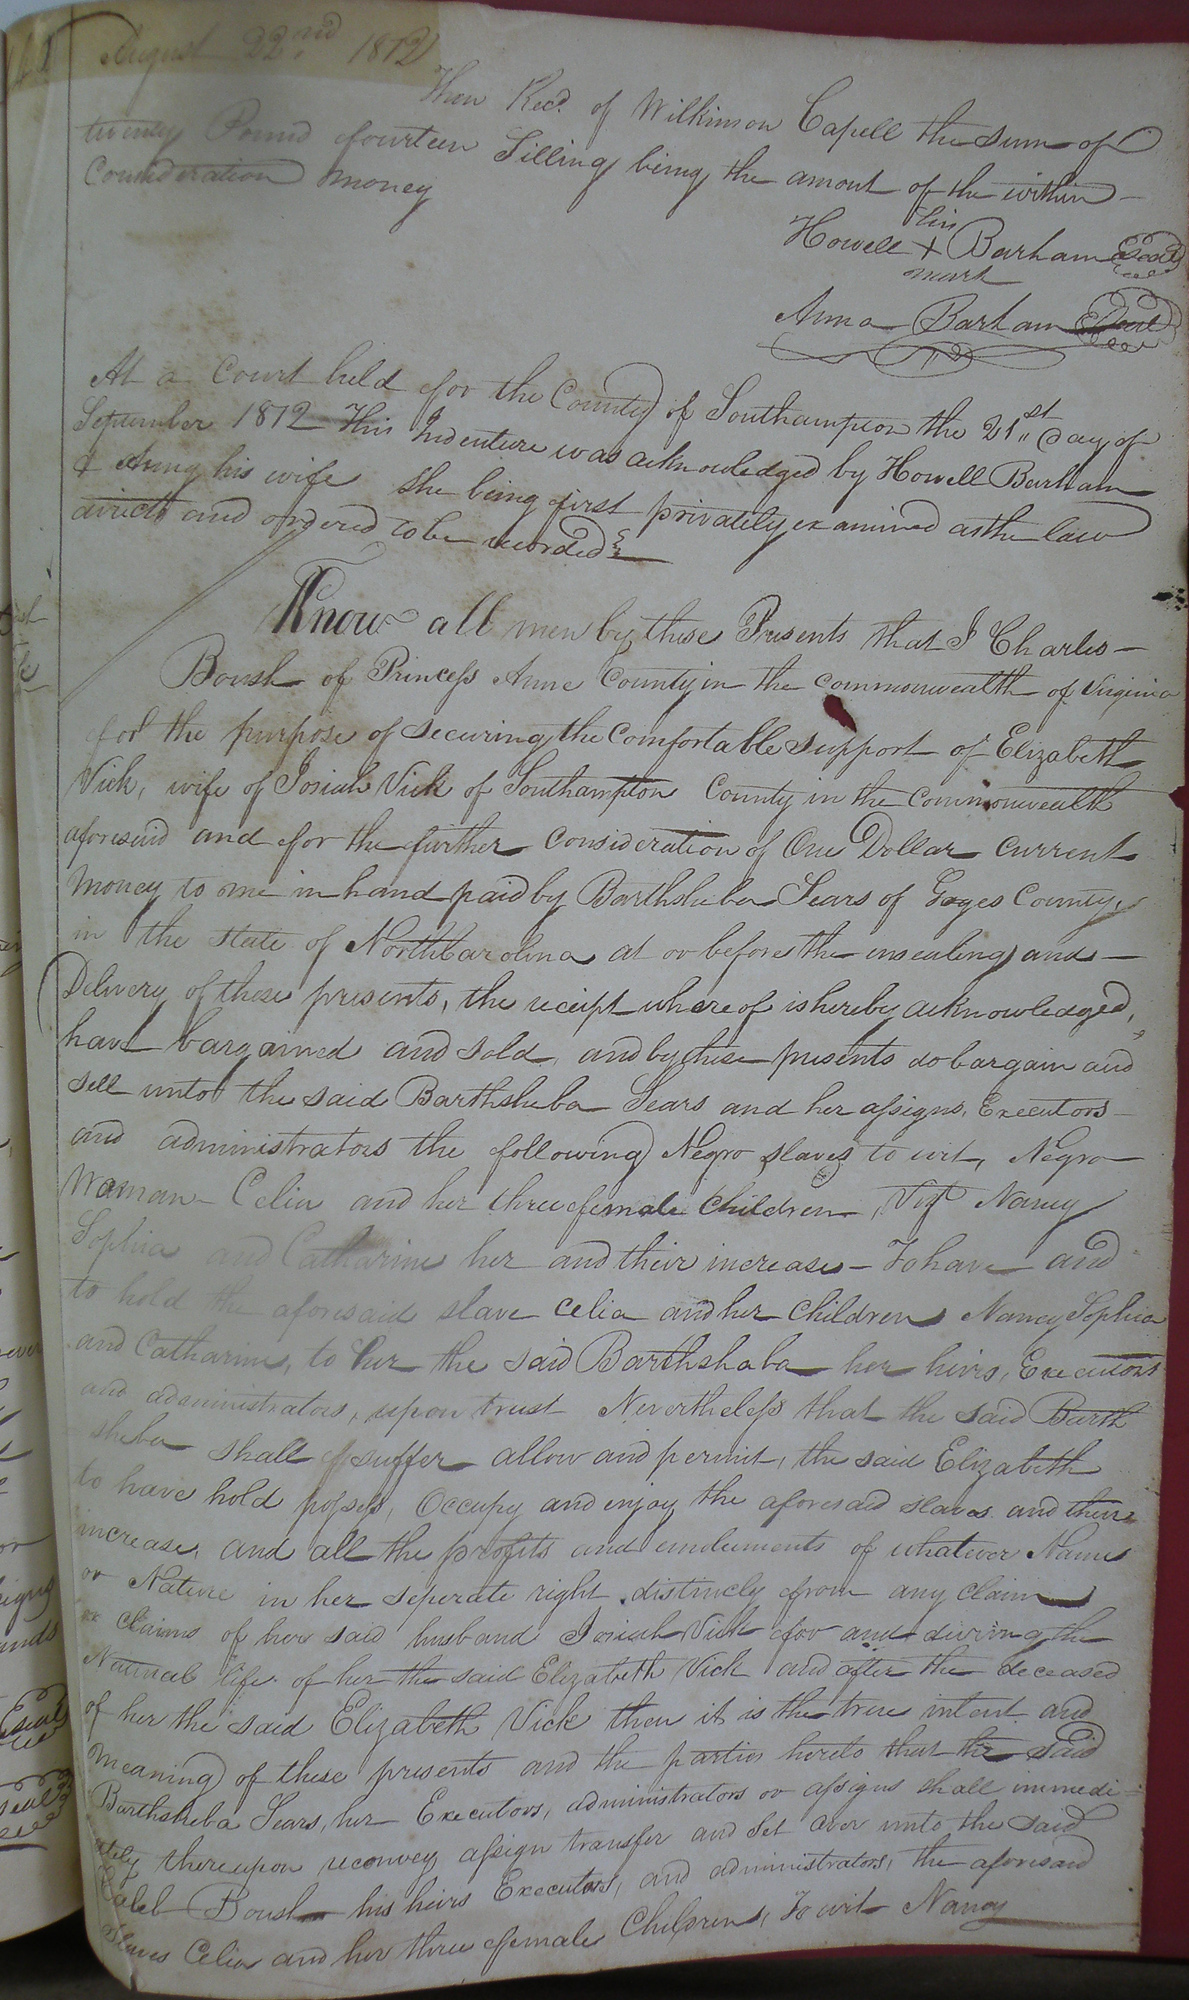 August 22nd 1812
Then Recd. of Wilkinson Capell the sum of
twenty Pound fourteen Silling being the amont of the within
Consideration money
his
Howell + Barham Seal
mark
Anna Barham Seal
At a Court held for the County of Southampton the 21st day of
September 1812 This Indenture was acknowledged by Howell Barham
& Anny his wife she being first privately examined as the law
directs and ordered to be recorded
Know all men by these Presents that I Charles
Boush of Princess Anne County in the commonwealth of Virginia
for the purpose of securing the comfortable support of Elizabeth
Vick, wife of Josiah Vick of Southampton County in the Commonwealth
aforesaid and for the further consideration of One Dollar current
money to me in hand paid by Barthsheba Sears of Gages County,
in the state of North Carolina at or before the ensealing and
Delivery of these presents, the receipt where of is hereby acknowledged,
have bargained and sold, and by these presents do bargain and
sell unto the said Barthsheba Sears and her assigns, Executors
and administrators the following Negro slaves to wit, Negro
Woman Celia and her three female children, Vizt Nancy
Sophia and Catharine her and their increase - To have and
to hold the aforesaid slave Celia and her Children Nancy Sophia
and Catharine, to her the said Barthshaba her heirs, Executors
and administrators, upon trust Nevertheless that the said Barth
sheba shall suffer allow and permit, the said Elizabeth
to have hold posess, Occupy and enjoy the aforesaid slaves and their
increase, and all the profits and emduments of whatever Name
or Nature in her seperate right distincly from any claim
or claims of her said husband Josiah Vick for and during the
Natural life of her the said Elizabeth Vick and after the deceased
of her the said Elizabeth Vick then it is the true intent and
meaning of these presents and the parties hereto that the said
Barthsheba Sears, her Executors, administrators or assigns shall immedi-
ately thereupon reconvey assign transfer and set over unto the said
Caleb Boush his heirs Executors, and administrators, the aforesaid
slaves Celia and her three female Children, To wit Nancy